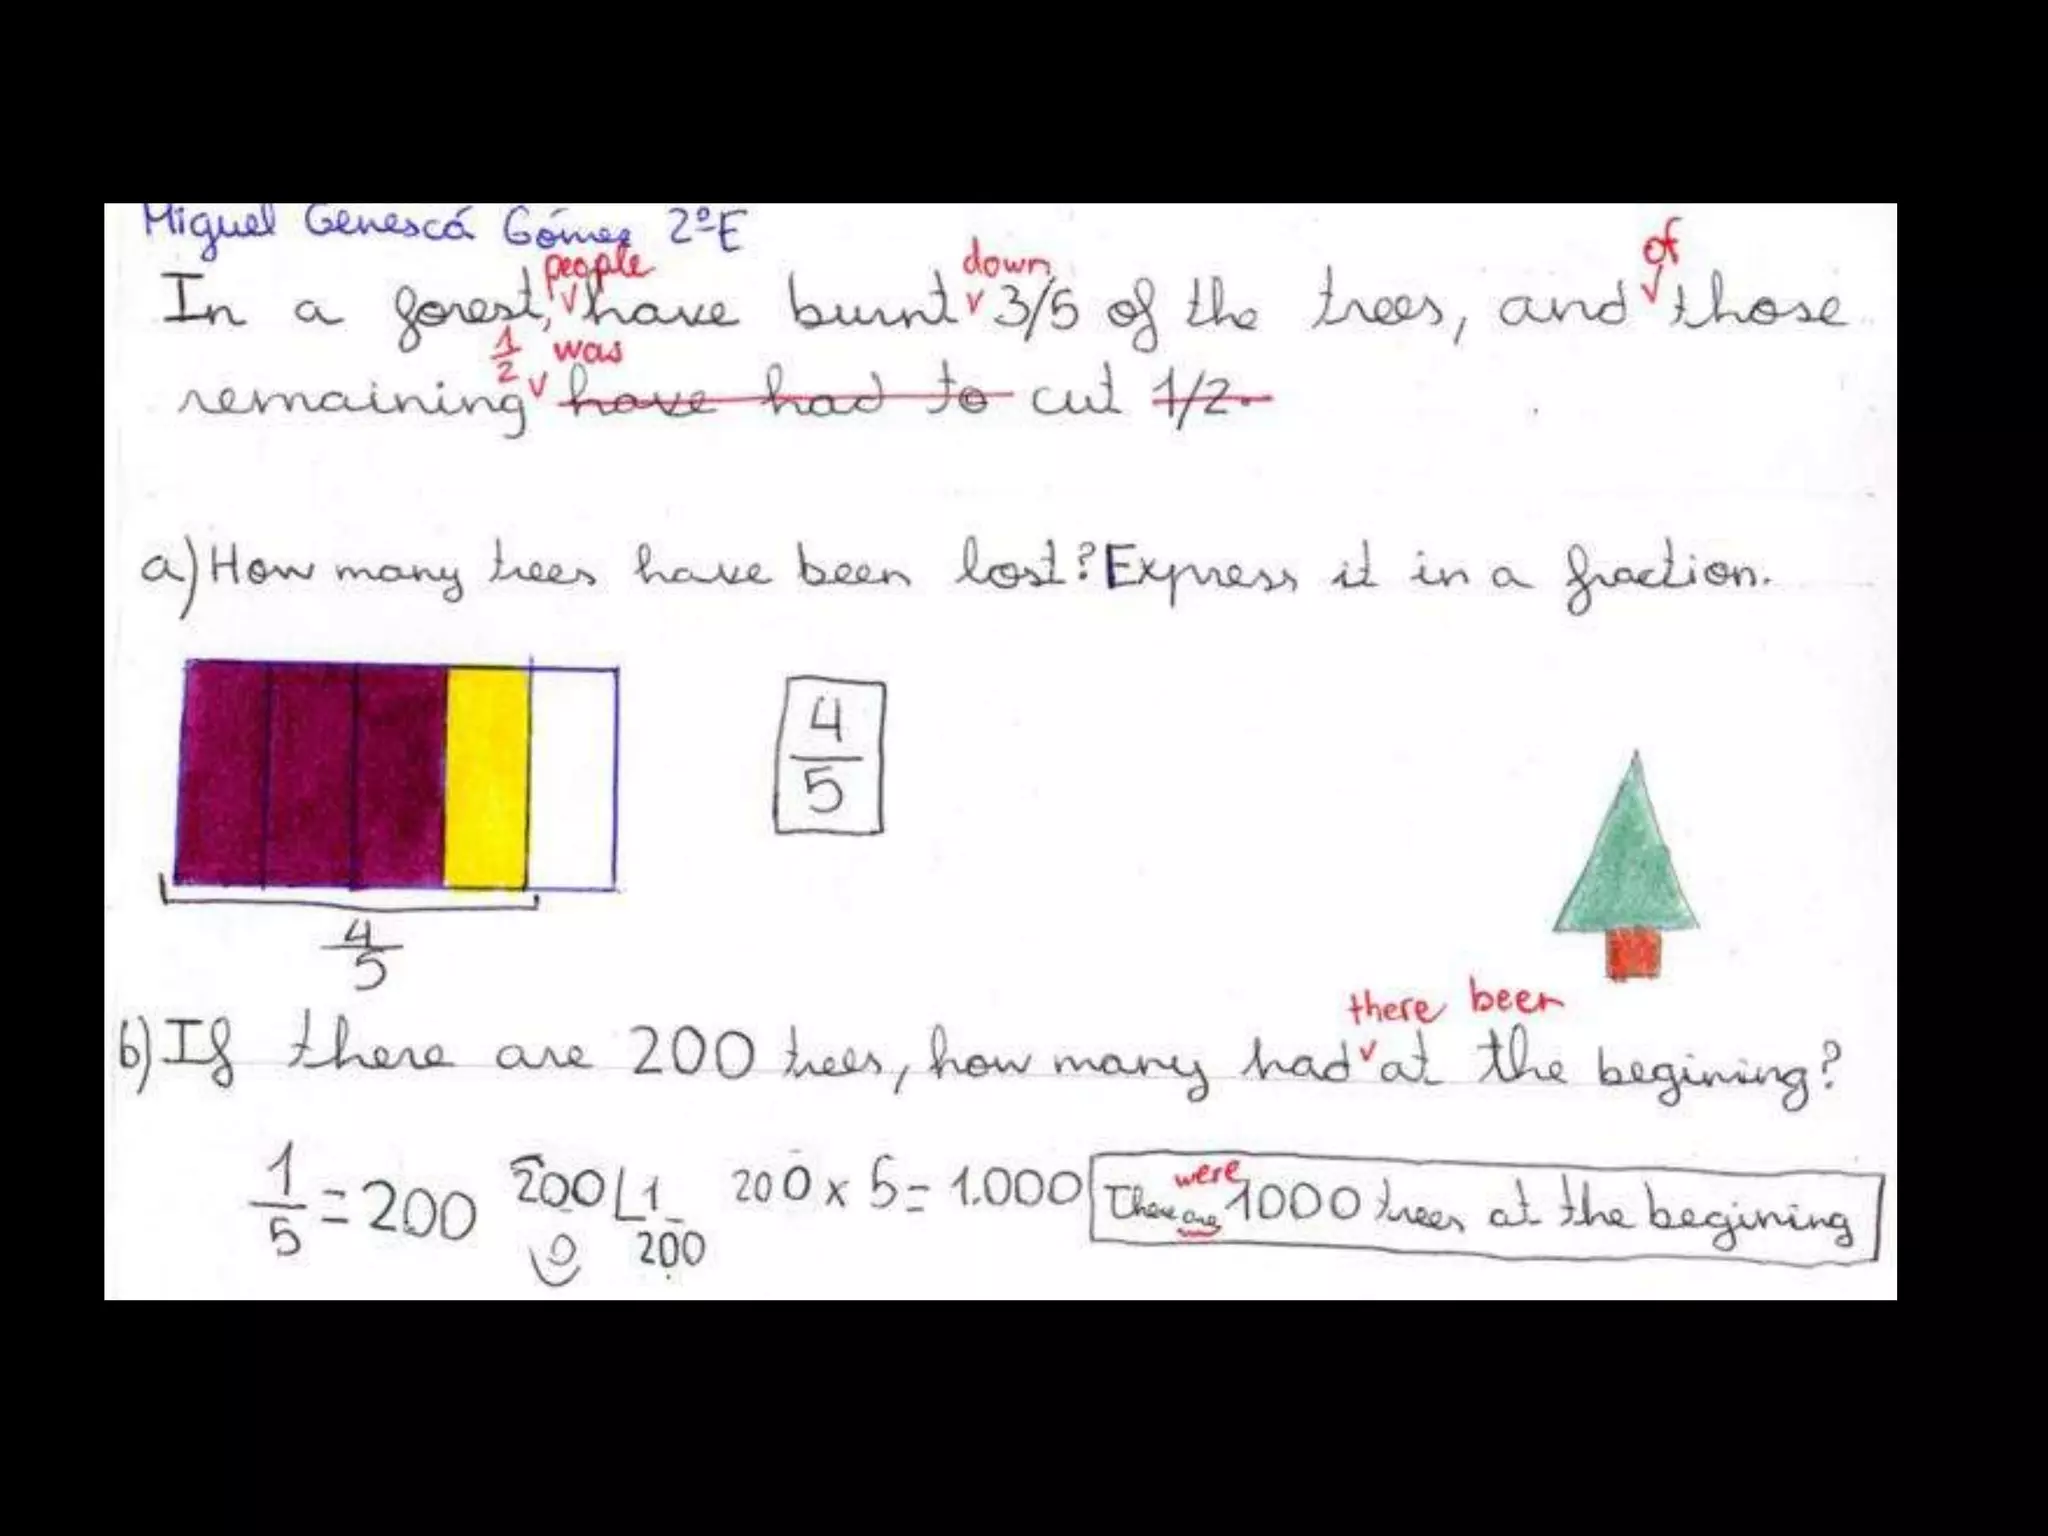 Miguel Genescá Gómez 2ºE
people down of
In a forest, have burnt 3/5 of the trees, and those
1/2 was
remaining have had to cut 1/2.
a) How many trees have been lost? Express it in a fraction.
4/5
4/5
there been
b) If there are 200 trees, how many had at the begining?
were
1/5 = 200 200 1 200 x 5 = 1.000 There are 1000 trees at the begining
0 200